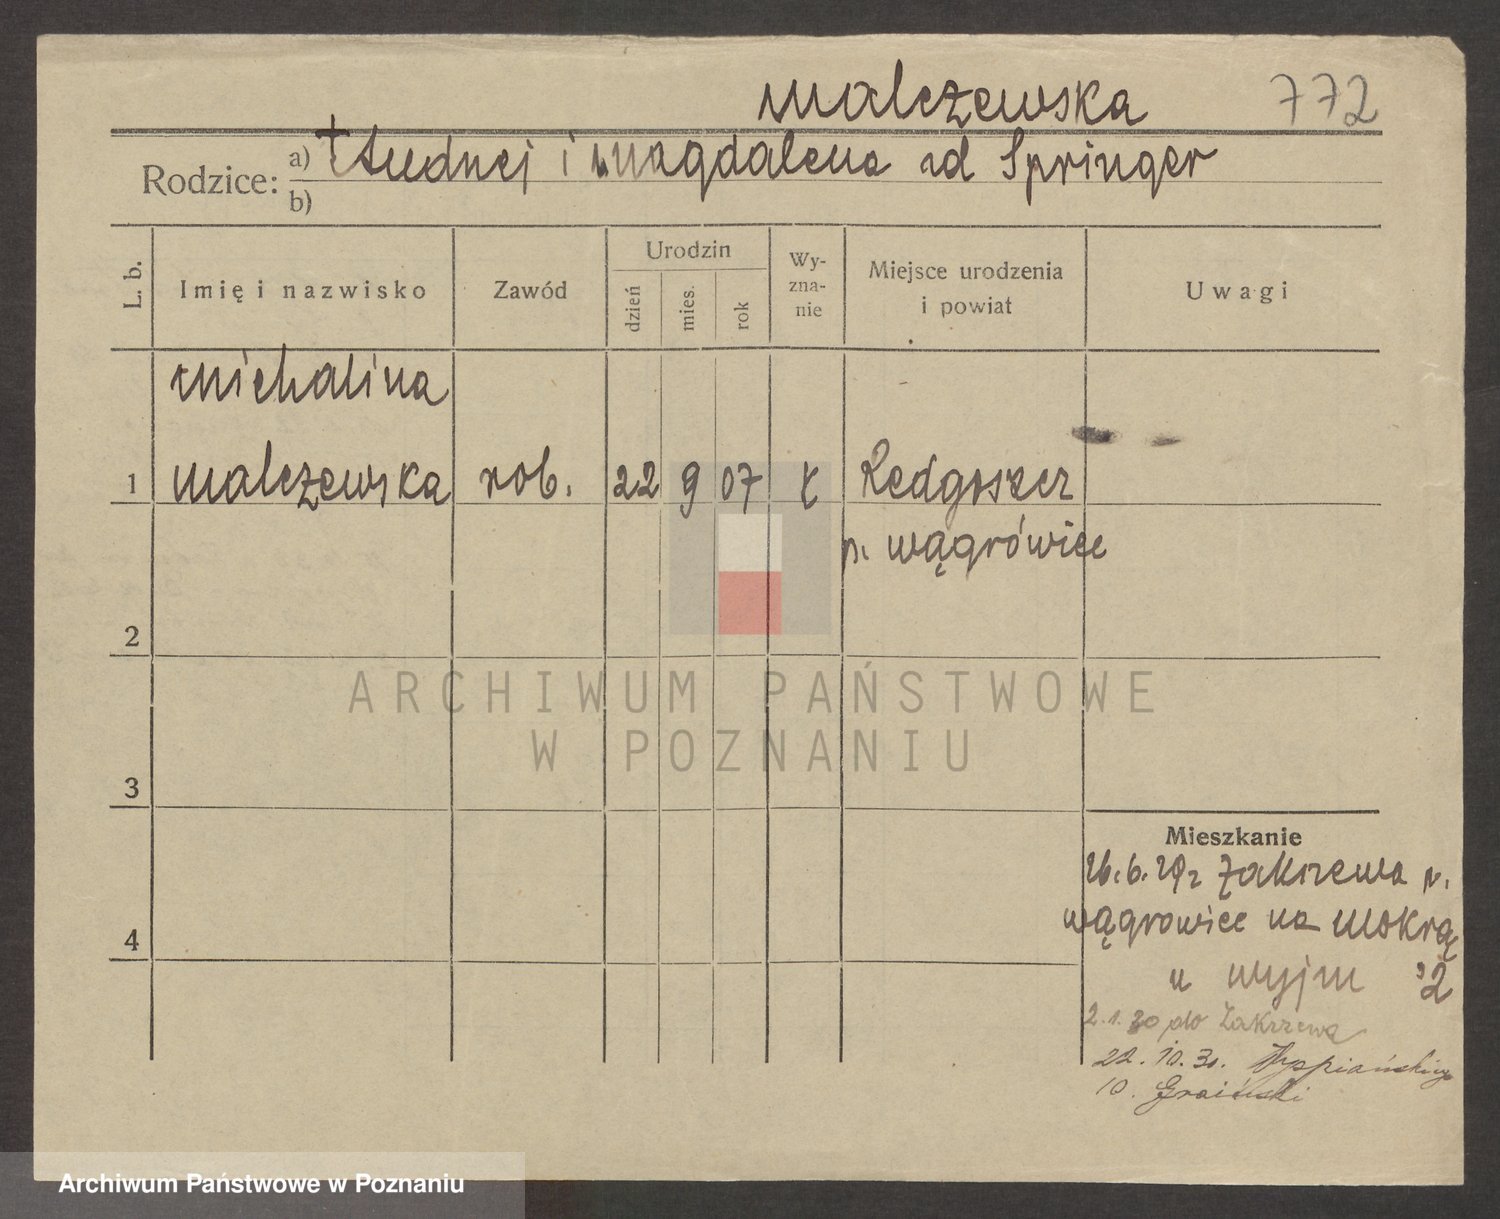 Malczewska 772
Rodzice: a) † Andrzej i Magdalena zd Springer
b)
L. b. Imię i nazwisko Zawód Urodzin dzień mies. rok Wy-zna-nie Miejsce urodzenia i powiat Uwagi
Michalina
1 Malczewska rob. 22 9 07 Redgoszcz
p. Wągrówiec
2
ARCHIWUM PAŃSTWOWE
W POZNANIU
3
Mieszkanie
26.6.29 z Zakrzewa p.
4 Wągrowiec na Mokrą
2
2.1.30 do Zakrzewa
22.10.30. Wyspiańskiego
10.
Archiwum Państwowe w Poznaniu